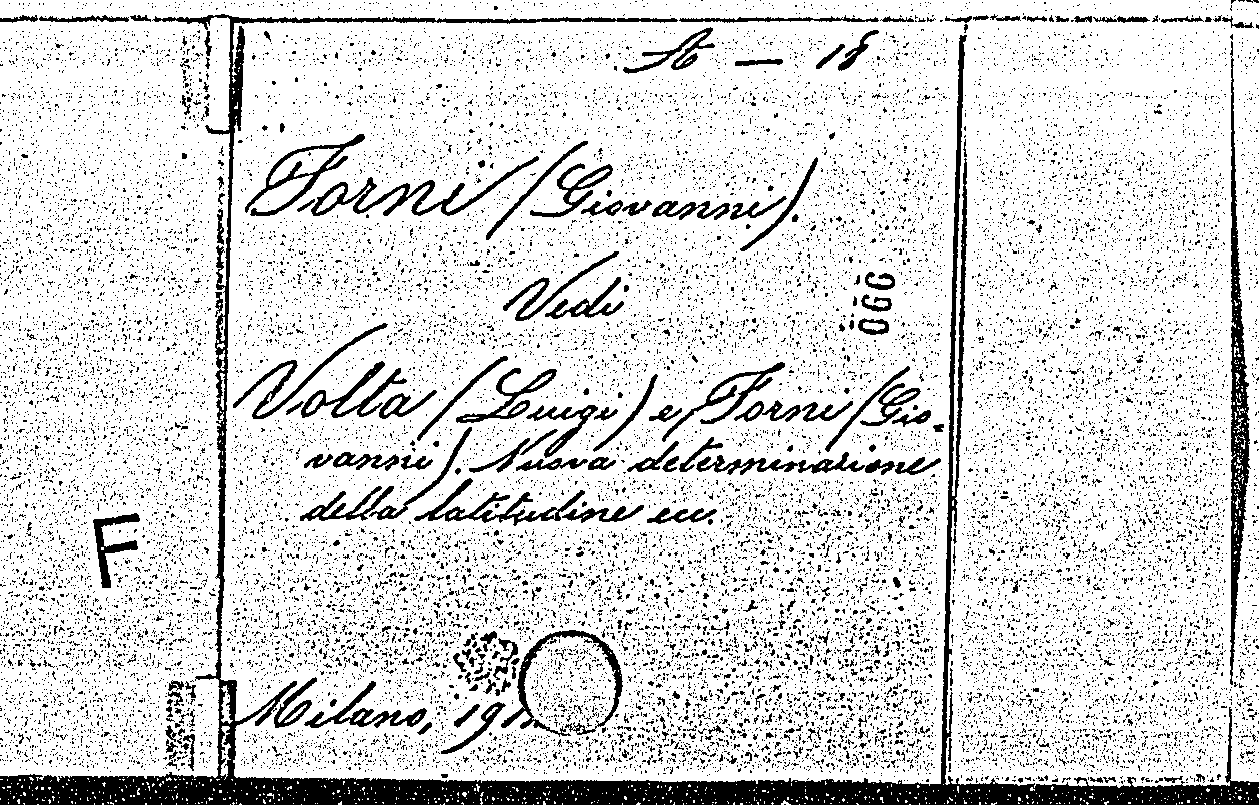 A — 18
Forni (Giovanni).
Vedi
066
Volta (Luigi) e Forni (Gio-
vanni). Nuova determinazione
della latitudine ecc.
F
Milano,